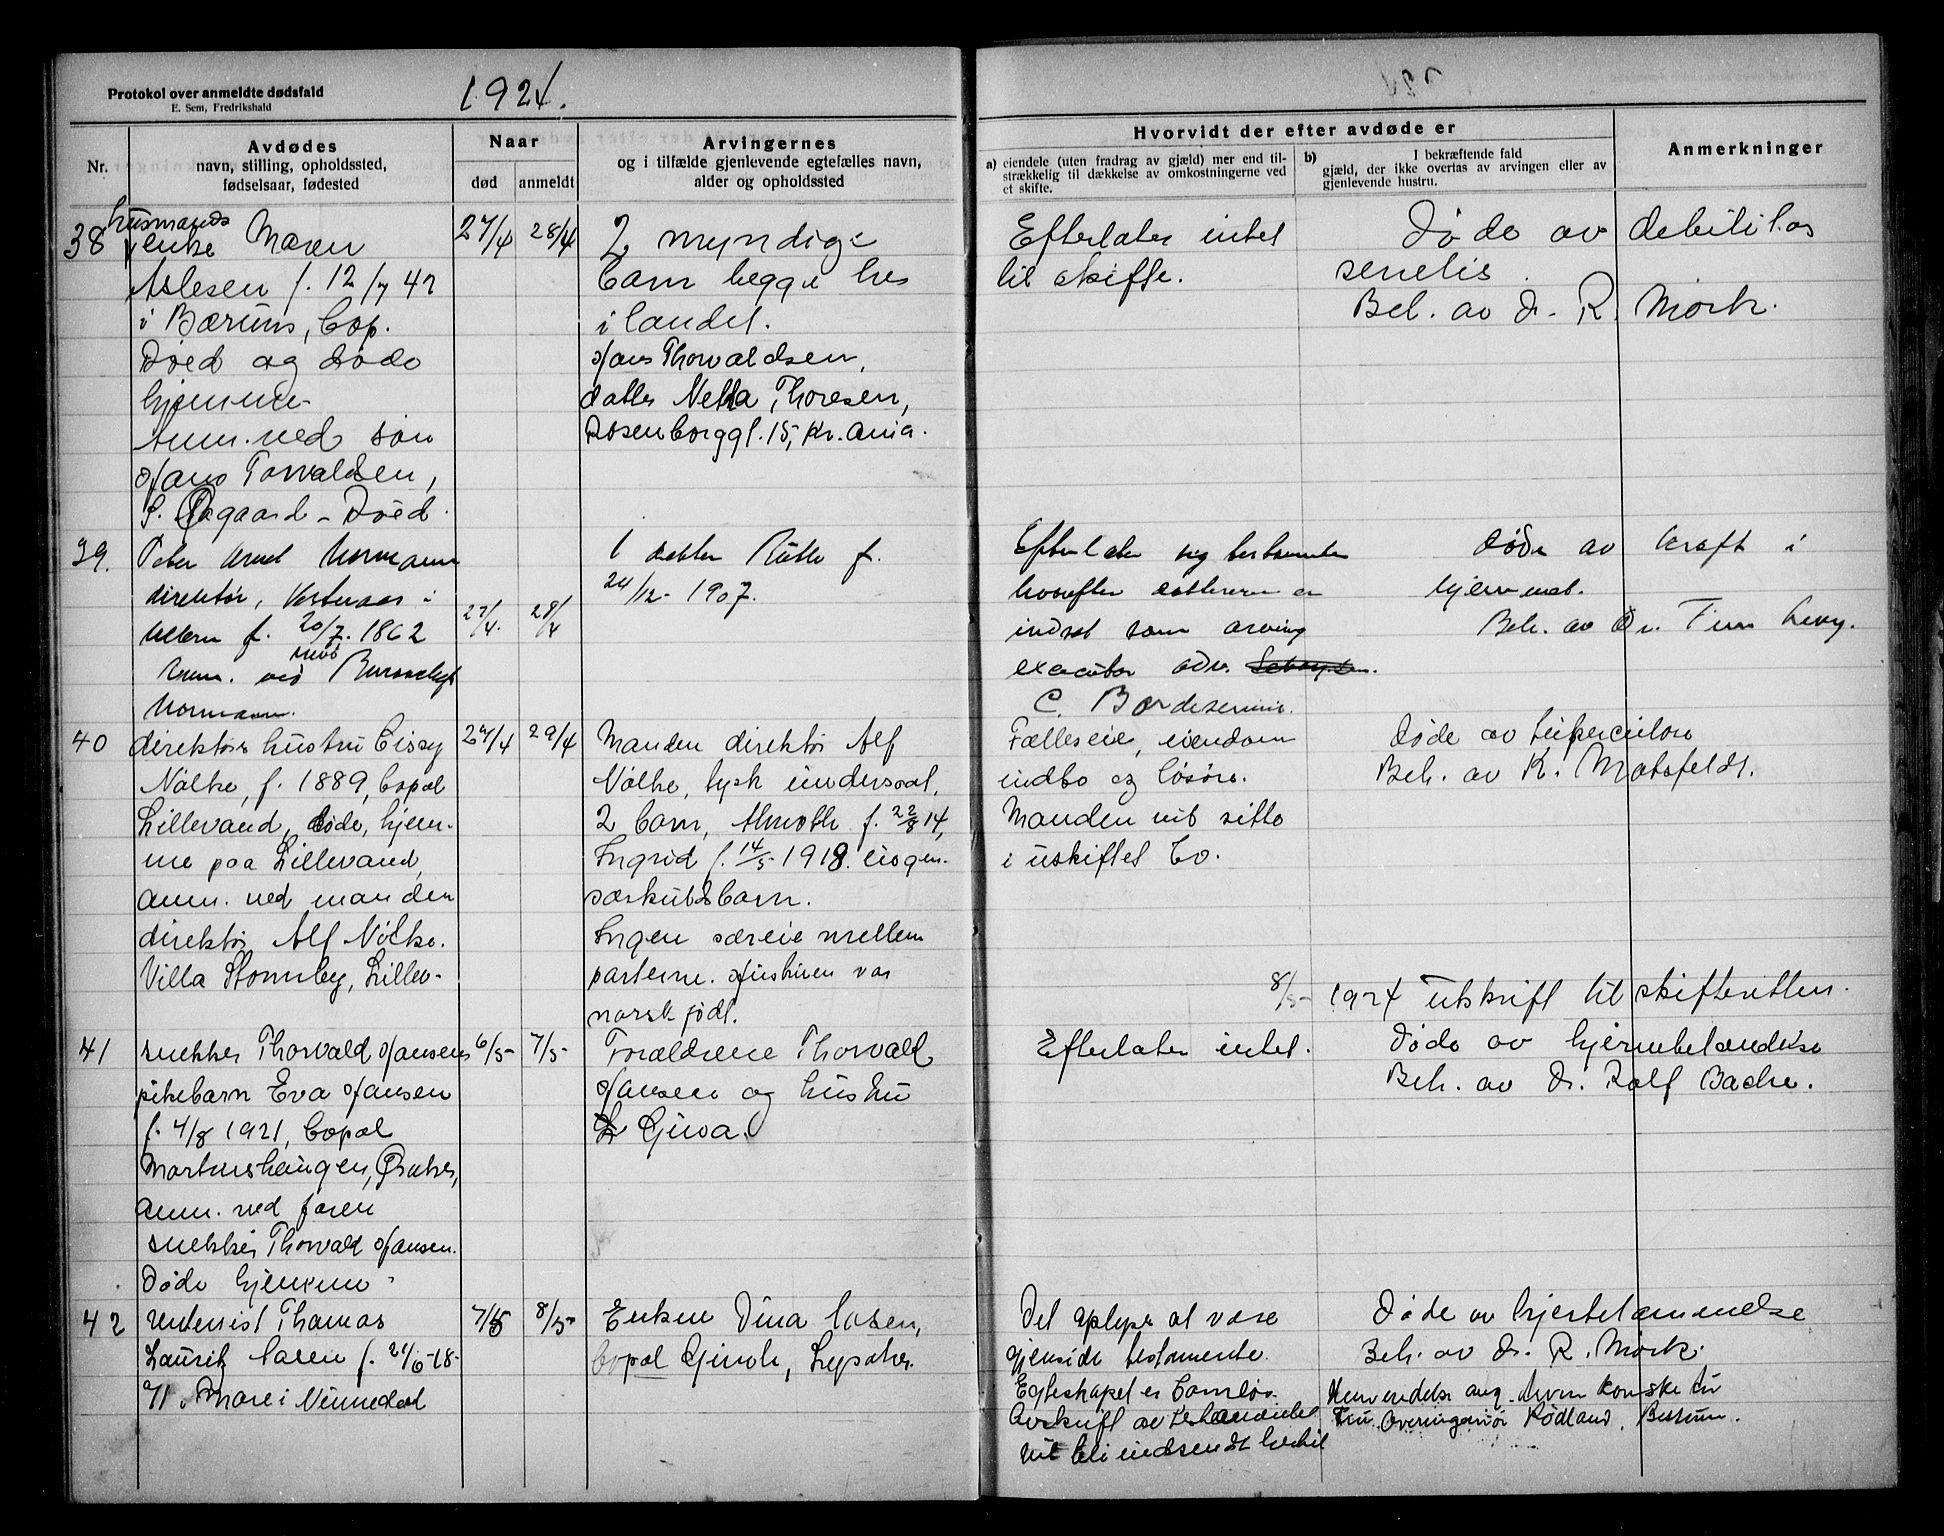 Protokol over anmeldte dødsfald
E. Sem, Fredrikshald
1924.
Nr.
Avdødes
navn, stilling, opholdssted,
fødselsaar, fødested
Naar
død
anmeldt
Arvingernes
og i tilfælde gjenlevende egtefælles navn,
alder og opholdssted
Hvorvidt der efter avdøde er
a) eiendele (uten fradrag av gjæld) mer end til-
strækkelig til dækkelse av omkostningerne ved
et skifte.
b) I bekræftende fald
gjæld, der ikke overtas av arvingen eller av
gjenlevende hustru.
Anmerkninger
38 husmands
enke Maren
Aslesen f. 12/7 47
i Bærum, bop.
Død og døde
hjemme
Anm. ved søn
Hans Torvaldsen,
27/4 28/4
2 myndige
barn begge her
i landet.
Hans Thorvaldsen,
datter Netta Thoresen,
Rosenborggt. 15, Kr.ania.
Efterlater intet
til skifte.
Døde av debilitas
senelis.
Beh. av dr. R. Mørk.
39. Peter Arnt Normann
direktør, Vesteraas i
Ullern f. 20/7. 1862
Anm. ved
Normann.
27/4. 28/4
1 datter Ruth f.
24/12 - 1907.
Efterlater sig testamente
hvorefter datteren er
indsat som arving
executor adv.
C.
Døde av kræft i
Beh. av Dr.
40 direktørs hustru Cissy
Nölke, f. 1889, bopæl
Lillevand, døde, hjem-
me paa Lillevand,
anm. ved manden
direktør Alf Nölke.
Villa Lillev-
27/4 29/4
Manden direktør Alf
Nölke, tysk undersaat,
2 barn, f. 22/8 14,
Ingrid f. 14/5 1918. ingen
særkuldsbarn.
Ingen særeie mellem
parterne. Hustruen var
norsk født.
Fælleseie, eiendom
indbo og løsøre.
Manden vil sitte
i uskiftet bo.
Døde av tuberculose
Beh. av K. Motzfeldt.
8/5 - 1924 utskrift til skifteretten.
41 snekker Thorvald Hansens
pikebarn Eva Hansen
f. 4/8 1921, bopæl
Martinshaugen, Øraker,
anm. ved faren
snekker Thorvald Hansen.
Døde hjemme
6/5- 7/5-
Forældrene Thorvald
Hansen og hustru
Efterlater intet.
Døde av hjernebetændelse
Beh. av dr. Rolf Bache.
42 rentenist Thomas
Lauritz f. 21/6-18-
71.
7/5 8/5-
Enken Dina
bopæl Lysaker.
Det oplyses at være
gjensidig testamente.
Egteskapet er barnløs.
Avskrift av testamentet
vil bli indsendt hertil
Døde av hjertelammelse
Beh. av dr. R. Mørk.
Henvendelse ang.
fru Rødland, Bestum.